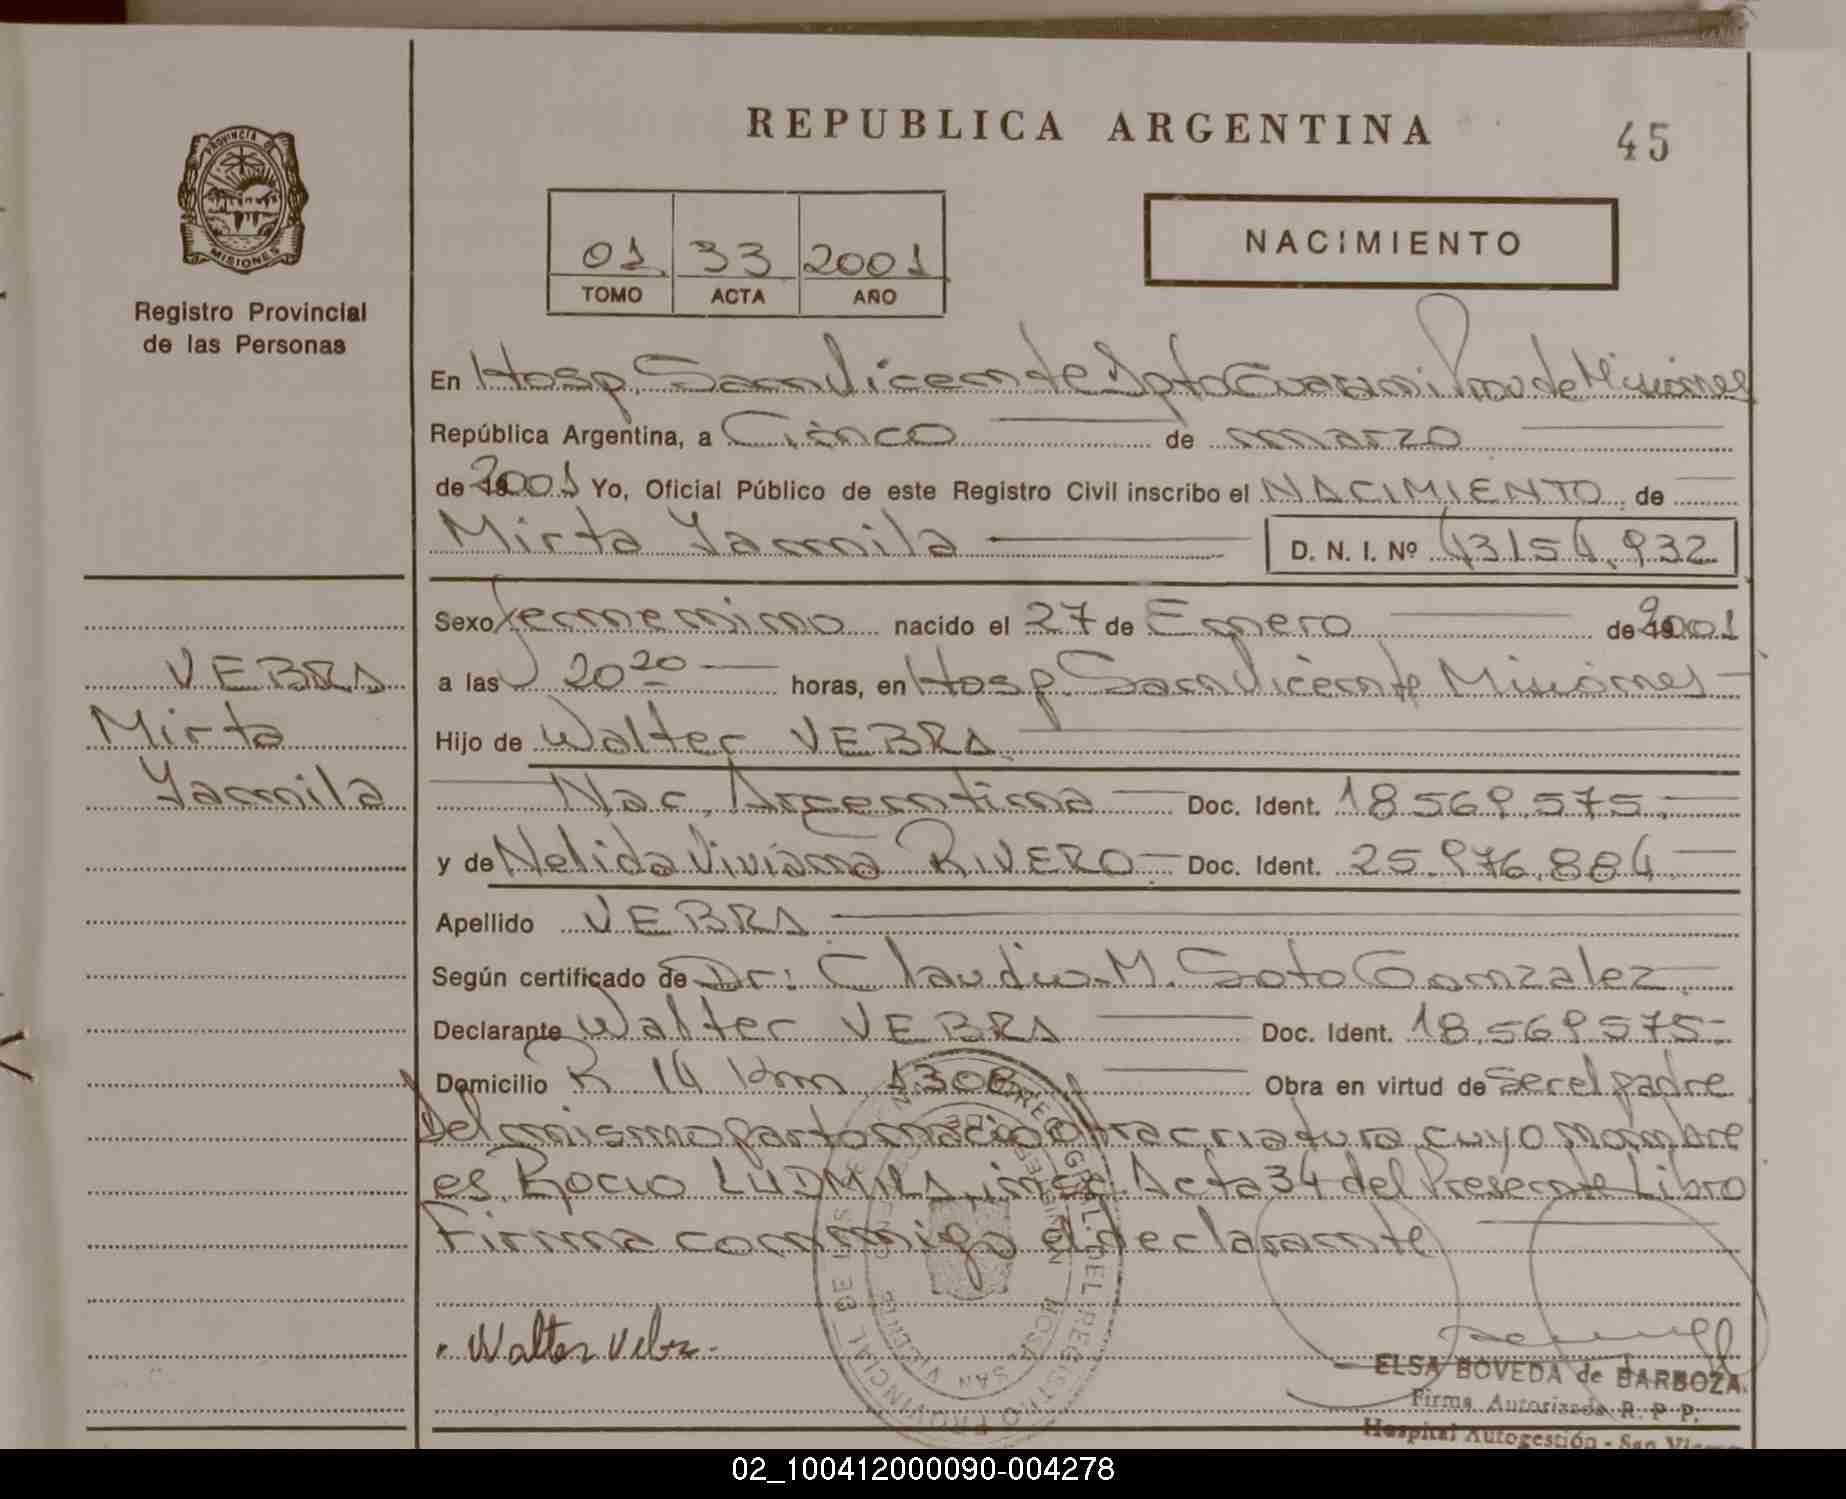 REPUBLICA ARGENTINA
45
PROVINCIA DE
MISIONES
Registro Provincial
de las Personas
01 33 2001
TOMO ACTA AÑO
NACIMIENTO
En Hosp. San Vicente Dpto Guarani Prov de Misiones
República Argentina, a Cinco de marzo
de 2001 Yo, Oficial Público de este Registro Civil inscribo el NACIMIENTO de
Mirta Yamila D. N. I. Nº 43154.932
Sexo femenino nacido el 27 de Enero de 2001
a las 20 20 horas, en Hosp. San Vicente Misiones
Hijo de Walter VEBRA
Nac. Argentina Doc. Ident. 18.569.575.
y de Nelida Viviana RIVERO Doc. Ident. 25.976.884
Apellido VEBRA
Según certificado de Dr: Claudio M. Soto Gonzalez
Declarante Walter VEBRA Doc. Ident. 18.569575
Domicilio R 14 Km 1308 Obra en virtud de ser el padre
Del mismo parto nacio otra criatura cuyo nombre
es Rocio LUDMILA, insc. Acta 34 del Presente Libro
Firma conmigo el declarante
VEBRA
Mirta
Yamila
Walter Vebra
ELSA BOVEDA de BARBOZA
Firma Autorizada R. P. P.
Hospital Autogestión - San
02_100412000090-004278